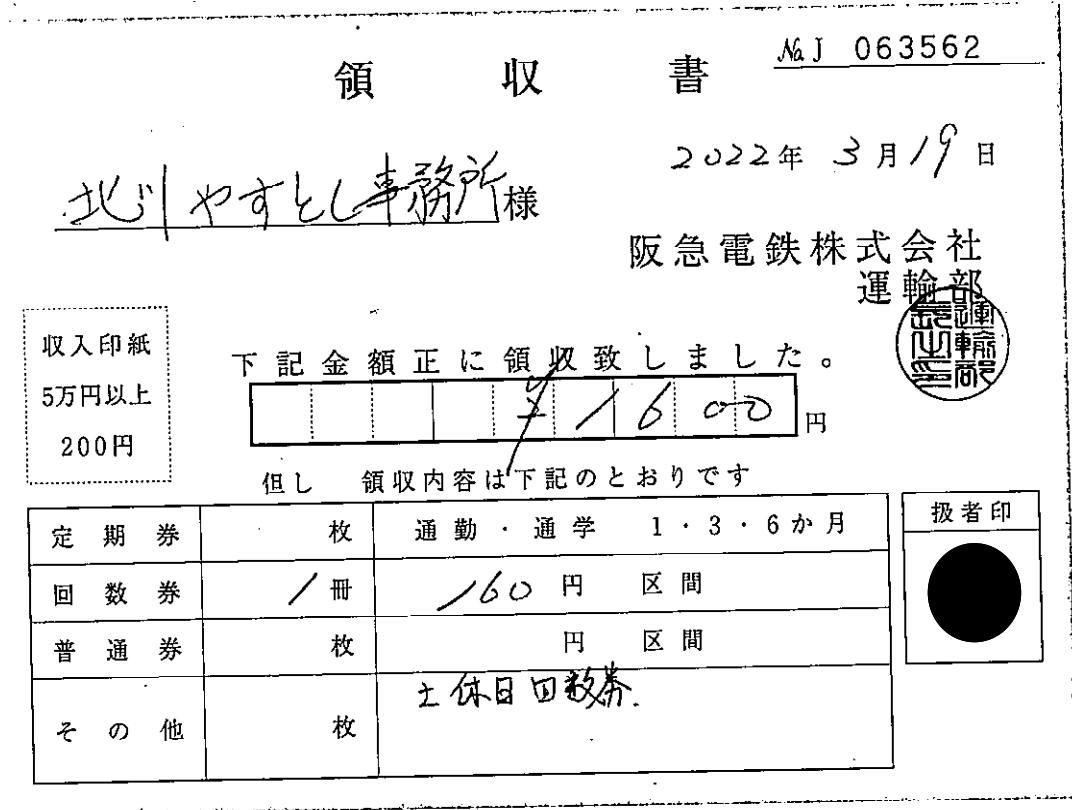 領収書
No. J 063562
2022年 3月19日
北川やすとし事務所様
阪急電鉄株式会社
運輸部
収入印紙
5万円以上
200円
下記金額正に領収致しました。
¥1600円
但し 領収内容は下記のとおりです
定期券 枚 通勤・通学 1・3・6か月
回数券 1冊 160円 区間
普通券 枚 円 区間
その他 枚 土休日回数券.
扱者印